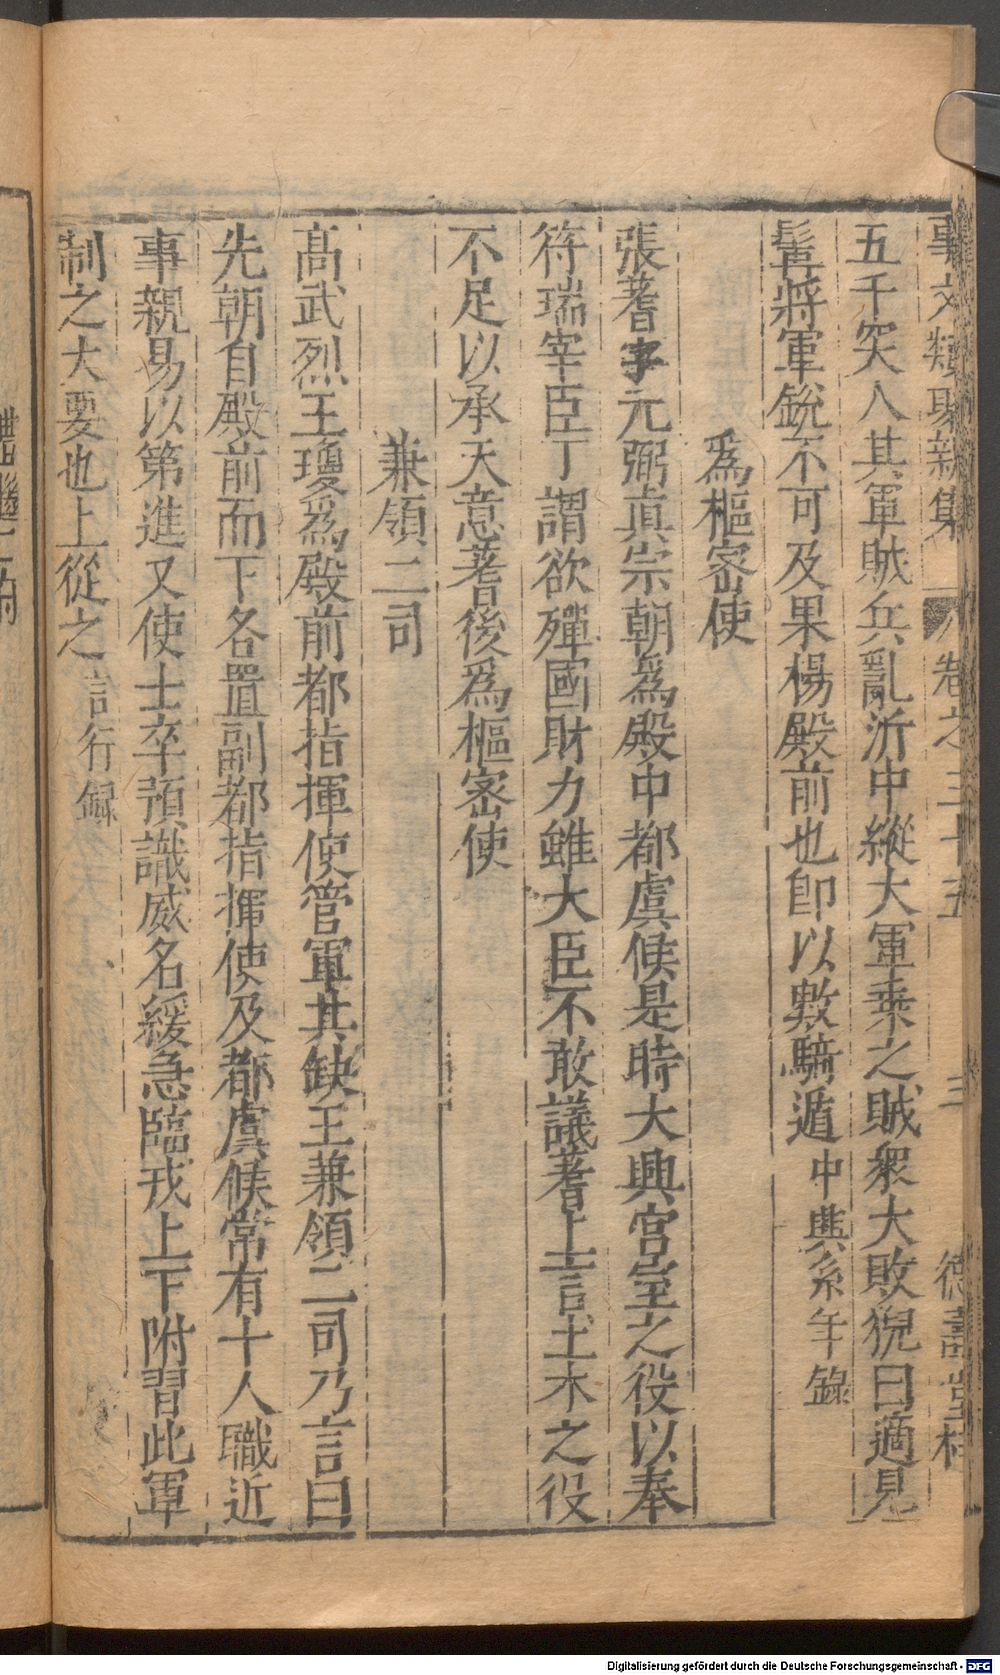 事文類聚新集 卷之三十五 三 德壽堂梓
五千突入其軍賊兵亂沂中縱大軍乗之賊衆大敗猊曰適見
髯將軍銳不可及果楊殿前也卽以數騎遁中興系年錄
爲樞密使
張耆字元弼眞宗朝爲殿中都虞候是時大興宫室之役以奉
符瑞宰臣丁謂欲殫國財力雖大臣不敢議耆上言土木之役
不足以承天意耆後爲樞密使
兼領二司
髙武烈王瓊爲殿前都指揮使管軍其缺王兼領二司乃言曰
先朝自殿前而下各置副都指揮使及都虞候常有十人職近
事親易以第進又使士卒預識威名緩急臨戎上下附習此軍
制之大要也上從之言行録
Digitalisierung gefördert durch die Deutsche Forschungsgemeinschaft - DFG